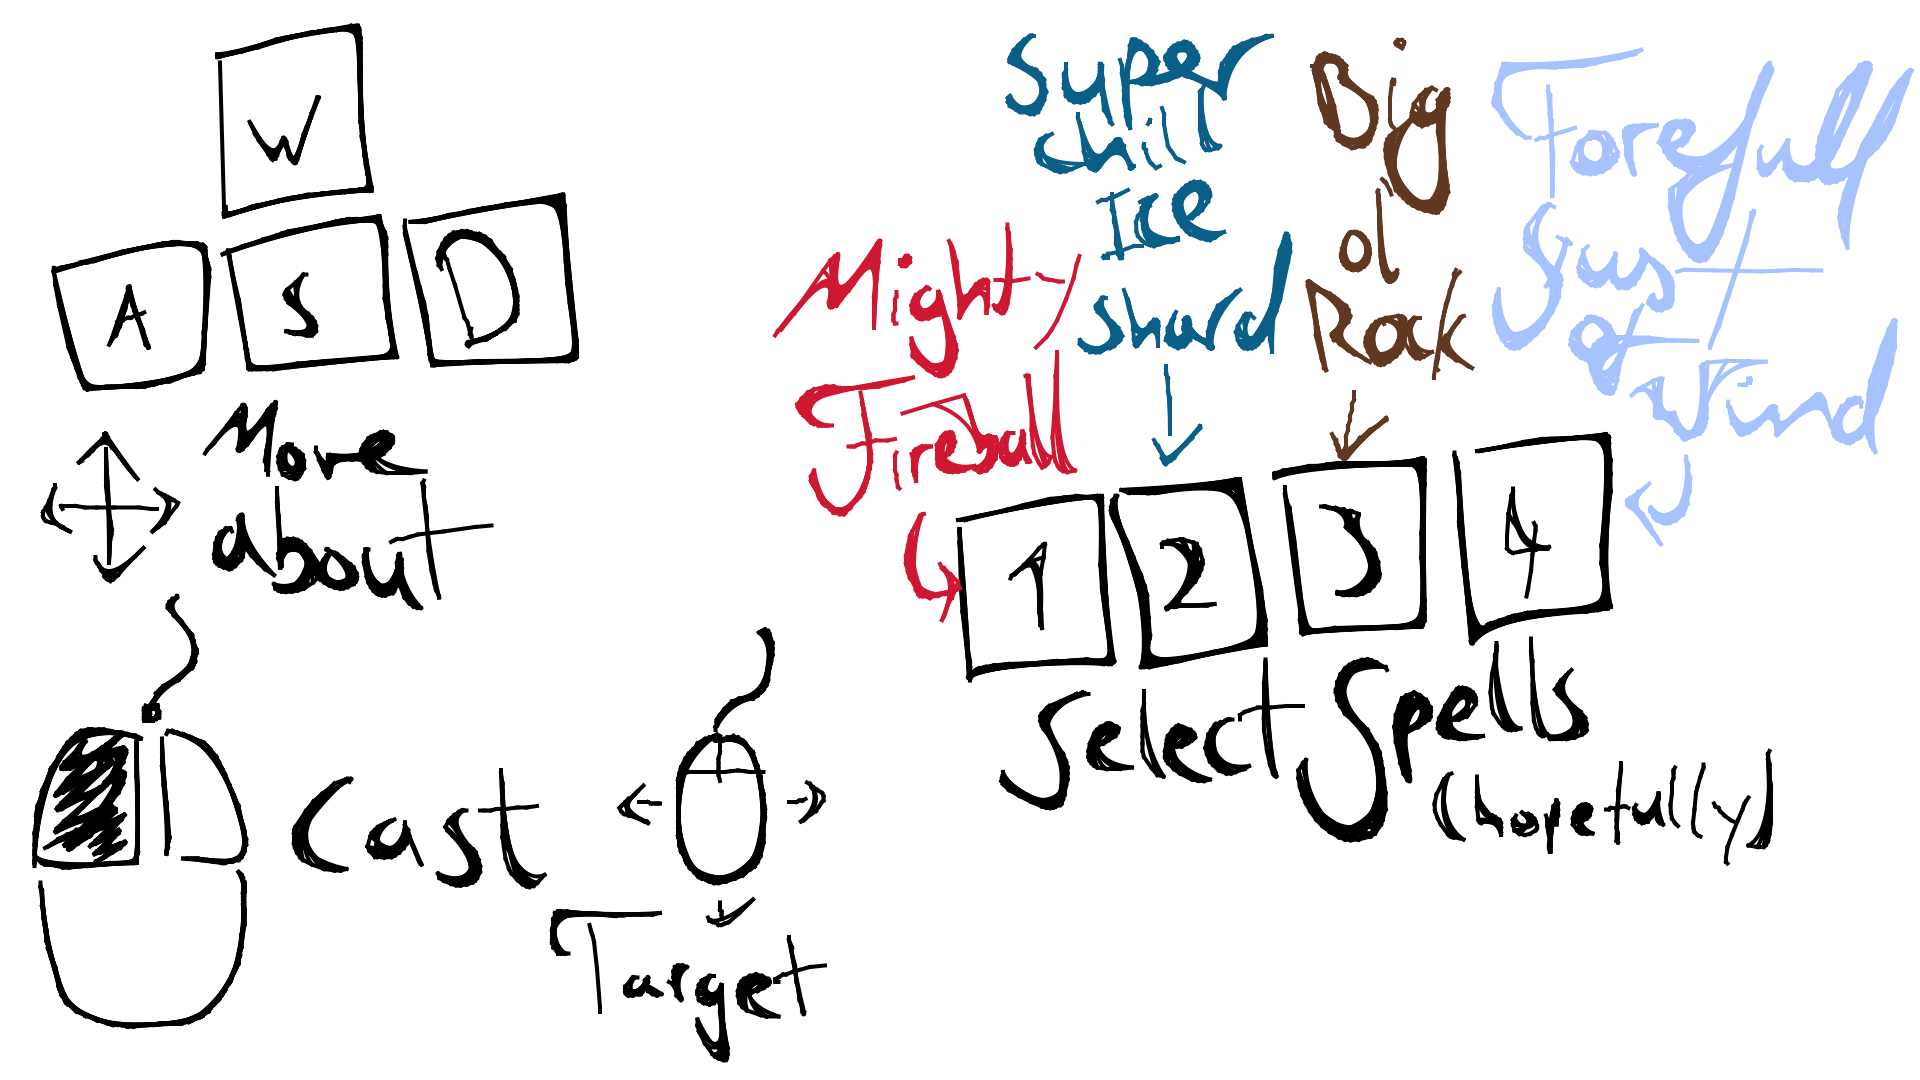 W
A S D
Move
about
Cast
Target
Mighty
Fireball
Super
chill
Ice
shard
Big
ol
Rock
Forefull
Gust
of
Wind
1 2 3 4
Select Spells
(hopefully)